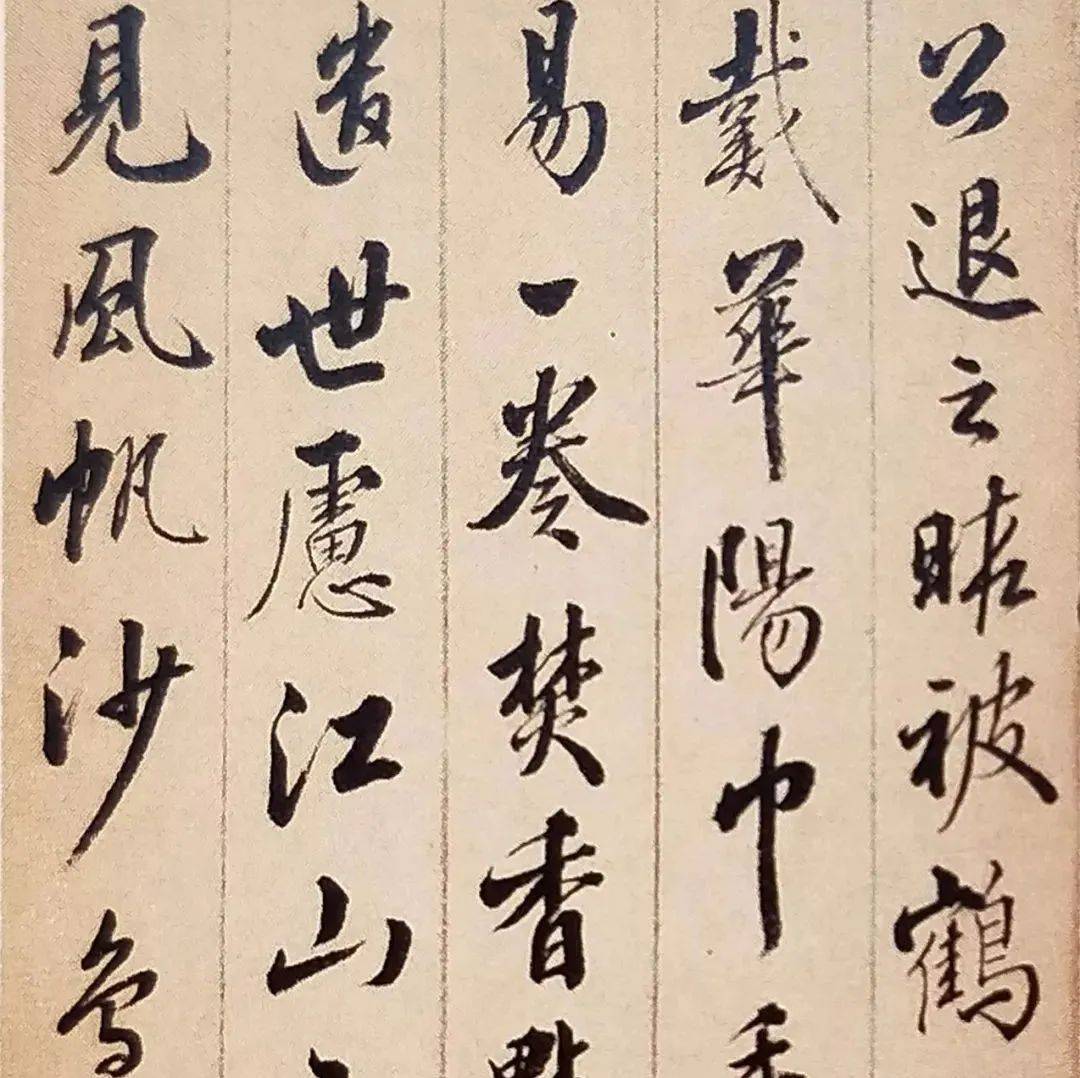 公退之暇被鶴
戴華陽巾
易一卷焚香默
遣世慮江山
見風帆沙鳥